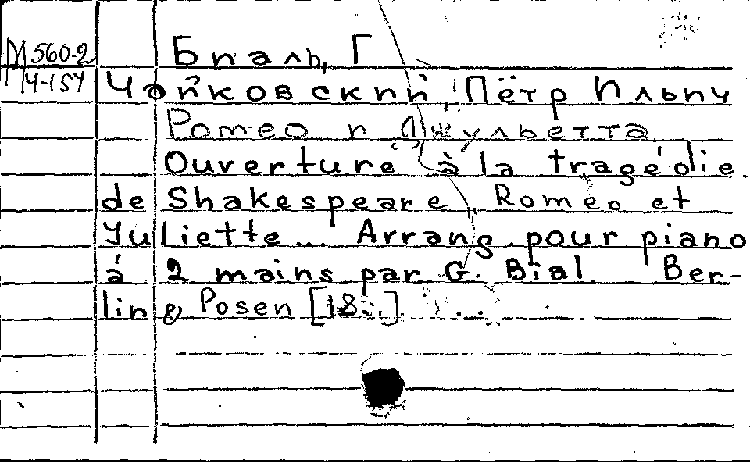 М 560-2
Ч-154
Биаль, Г
Чайковский, Пётр Ильич
Ромео и Джульетта
Ouverture à la tragédie
de Shakespeare, Roméo et
Juliette... Arrang. pour piano
à 2 mains par G. Bial. Ber-
lin & Posen [18..]